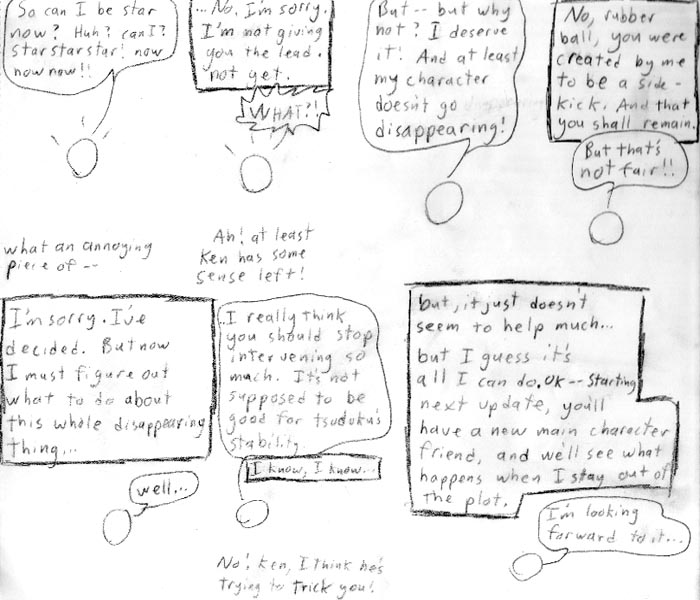 So can I be star
now? Huh? can I?
Star star star! now
now now!!
...No. I'm sorry.
I'm not giving
you the lead.
not yet.
WHAT?!
But-- but why
not? I deserve
it! And at least
my character
doesn't go
disappearing!
No, rubber
ball, you were
created by me
to be a side-
kick. And that
you shall remain.
But that's
not fair!!
what an annoying
piece of --
Ah! at least
Ken has some
sense left!
I'm sorry. I've
decided. But now
I must figure out
what to do about
this whole disappearing
thing...
well...
..I really think
you should stop
intervening so
much. It's not
supposed to be
good for tsudoku's
stability.
I know, I know...
but, it just doesn't
seem to help much...
but I guess it's
all I can do. OK -- Starting
next update, you'll
have a new main character
friend, and we'll see what
happens when I stay out of
the plot.
I'm looking
forward to it...
No! Ken, I think he's
trying to trick you!